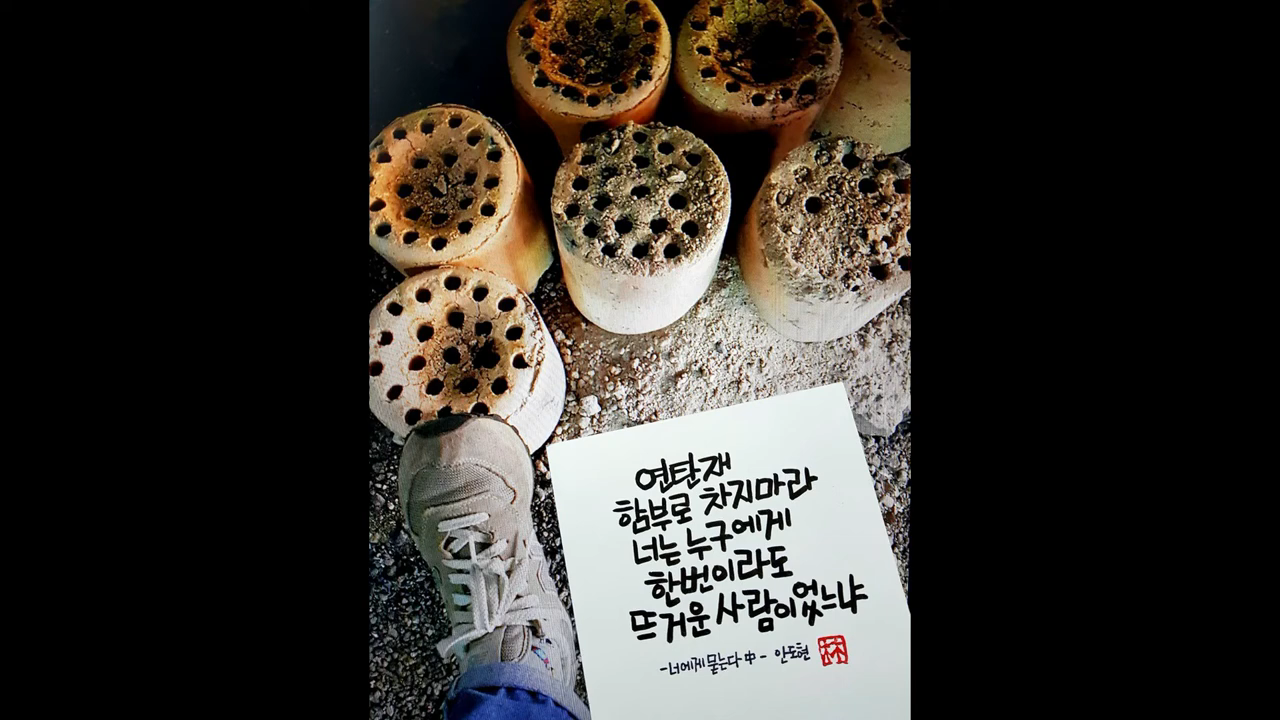 연탄재
함부로 차지마라
너는 누구에게
한번이라도
뜨거운 사람이었느냐
-너에게 묻는다 中- 안도현